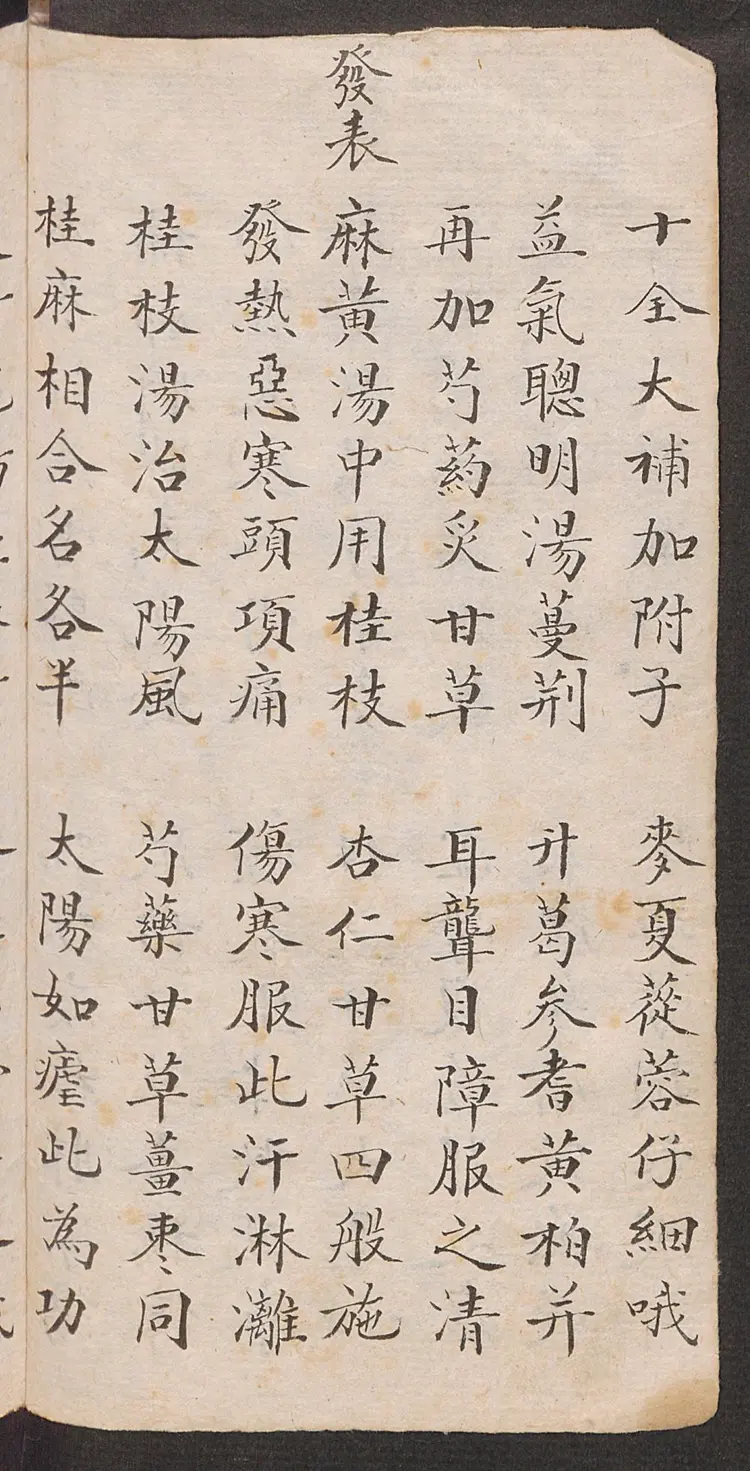 十全大補加附子 麥夏蓯蓉仔細哦
益氣聰明湯蔓荆 升葛參耆黄柏并
再加芍药炙甘草 耳聾目障服之清
發表
麻黄湯中用桂枝 杏仁甘草四般施
發熱惡寒頭項痛 傷寒服此汗淋灕
桂枝湯治太陽風 芍藥甘草薑棗同
桂麻相合名各半 太陽如瘧此為功